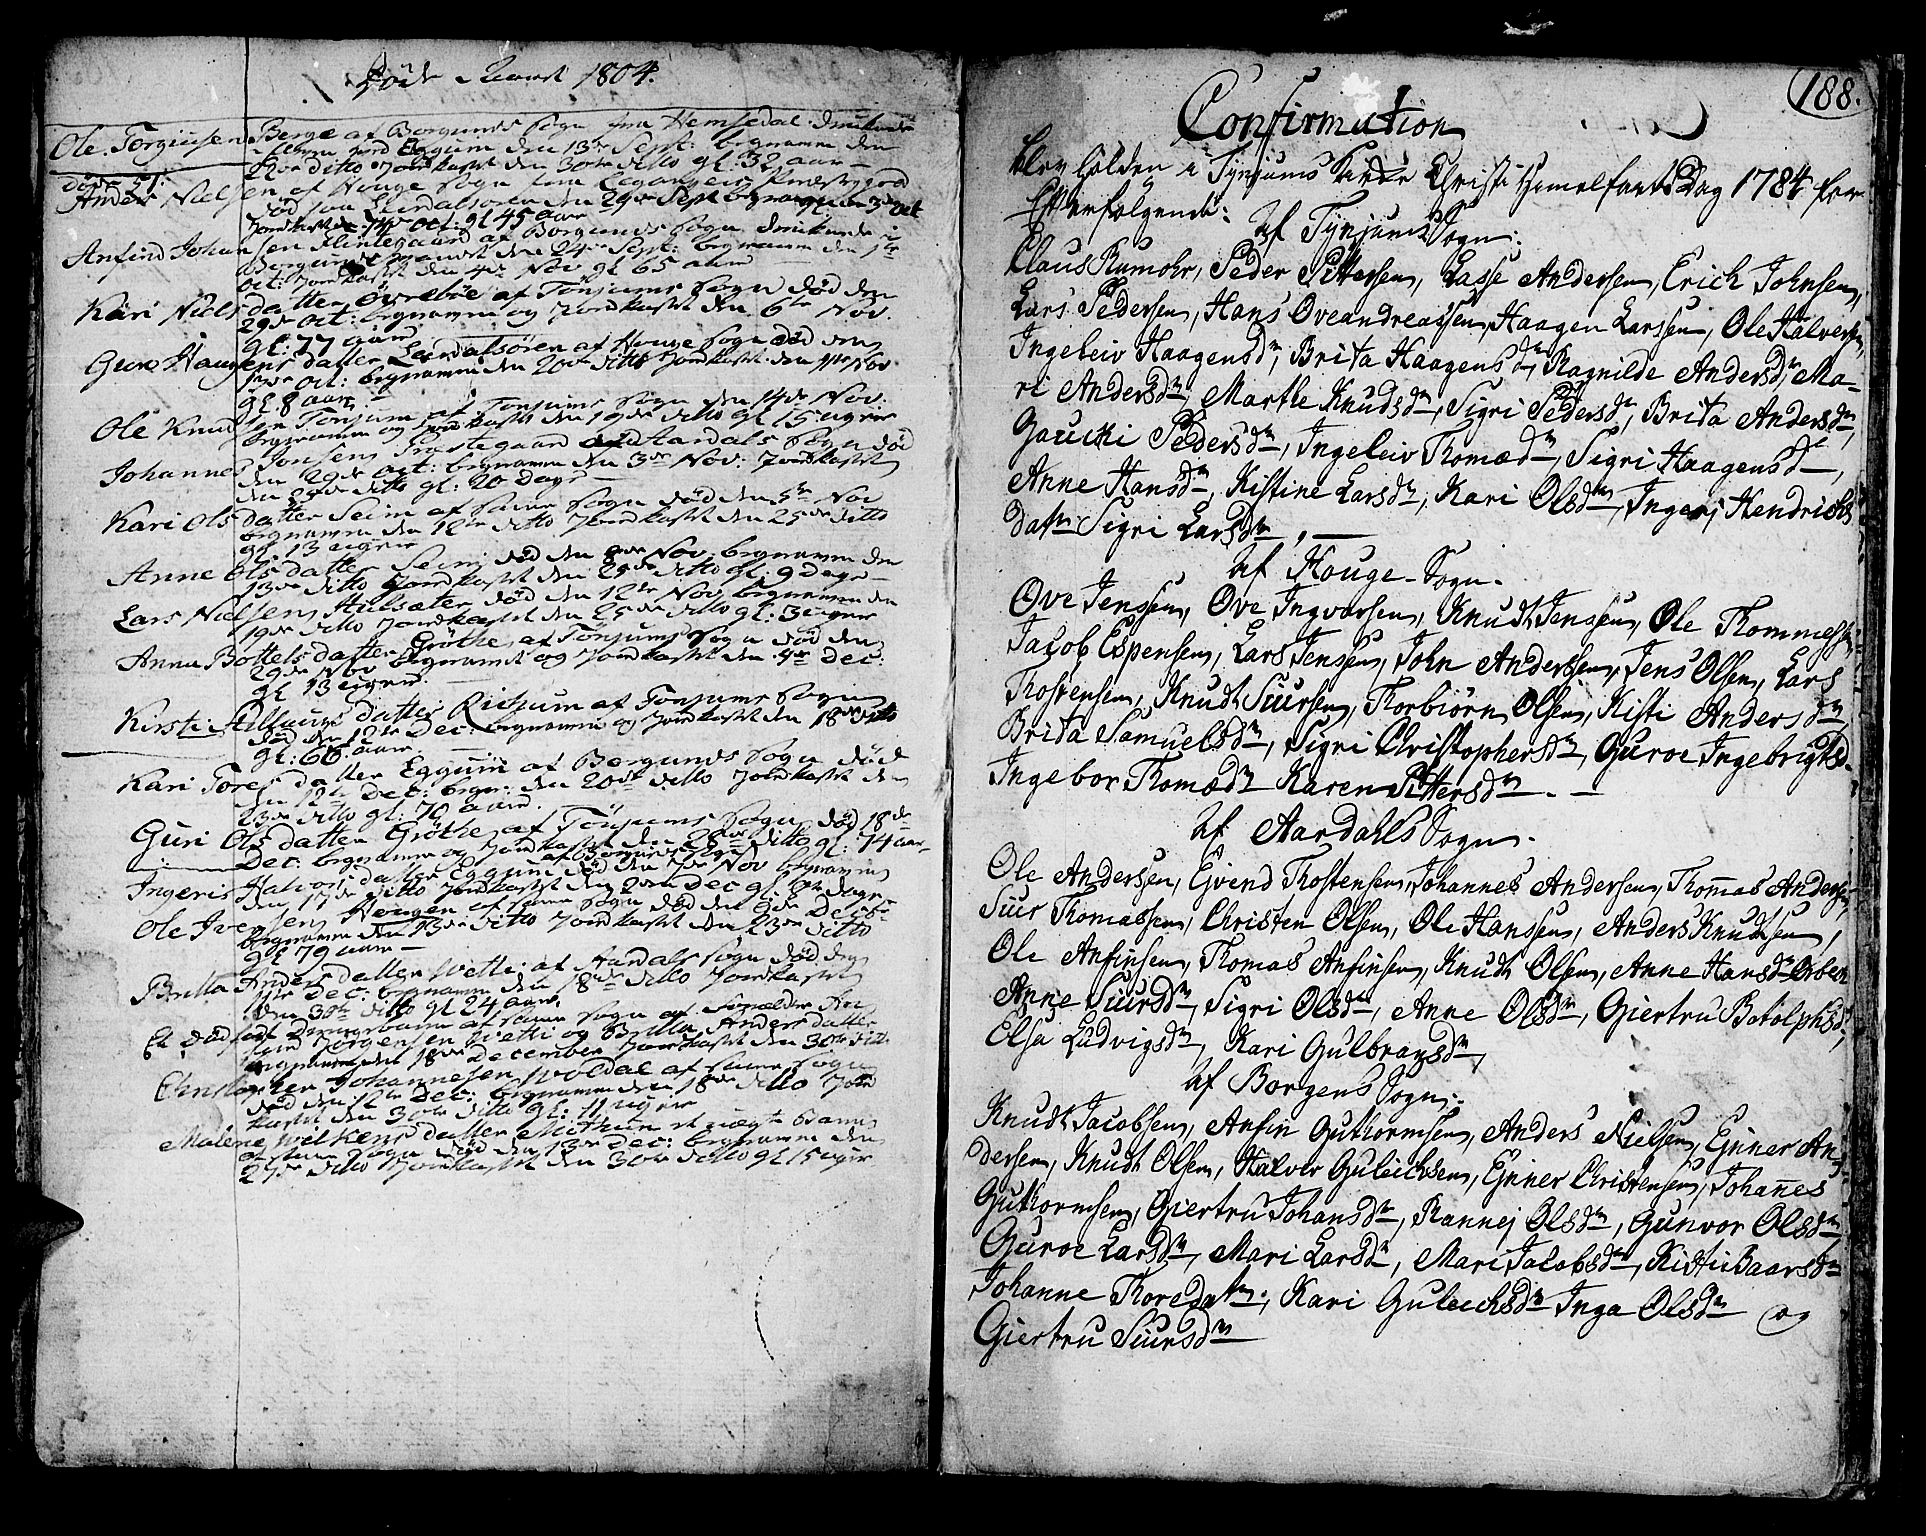 Døde Aaret 1804.
Ole Torgiusen Berge af Borgunds Sogn fra Hemsedal druknede
Eggum den 13de Sept: begravne den
ditto Jordkastet den 30te ditto gl: 32 aar
døde 51.
Anders Nielsen af Houge Sogn fra
død paa Leerdalsøren den 29de Sept begravne den 3de Oct
Jordkastet den 14de Oct: gl 45 aar
Anfind Johansen Klintegaard af Borgunds Sogn druknede i
Borgunds den 24de Sept: begravne den 1te
Oct: Jordkastet den 4de Nov gl 65 aar
Kari Niels datter Øvrebøe af Tönjums Sogn død den
29de Oct: begravne og Jordkastet den 6te Nov.
gl: 77 aar
Guro Haagens datter Leerdalsören af Houge Sogn død den
13de Oct: begravne den 20de ditto Jordkastet den 11te Nov
gl. 8 aar
Ole Knudsen Tonjum af Tonjums Sogn den 14de Nov.
begravne og Jordkastet den 19de ditto gl 15 uger
Johannes Jonsen Præstegaard Aardals Sogn død
den 29de Oct: begravne den 3de Nov: Jordkastet
den ditto gl: 20 Dage
Kari Ols datter Seim af samme Sogn død den 5te Nov
begravne den 12te ditto Jordkastet den 25de ditto
gl 13 uger
Anne Ols datter Seim død den 8de Nov. begravne den
13de ditto Jordkastet den 25de ditto gl: 9 Dage
Lars Nielsen Hulsæter død den 12te Nov begravne den
19de ditto Jordkastet den 25de ditto gl: 3 uger
Anna Bottels datter Gröthe af Tönjums Sogn død den
29de Nov begravne og Jordkastet den 4de Dec:
gl 13 uger
Kirsti datter af Tonjums Sogn
død den 12te Dec: begravne og Jordkastet den 18de ditto
gl: 66 aar
Kari Tores datter Eggum af Borgunds Sogn død
den 12te Dec: begr: den 20de ditto Jordkastet den
23de ditto gl: 70 aar.
Guri Ols datter Gröthe af Tönjums Sogn død 18de
Dec: begravne og Jordkastet den ditto gl: 74 aar
Ingeris Halvors datter Eggum af Borgunds Sogn død den 7de Nov begravne
den 17de ditto Jordkastet den 2den Dec gl. Dage
Ole Iversen Hougen af samme Sogn død den 9de Decbr
begravne den 13de ditto Jordkastet den 23de ditto
gl 79 aar
Britta Anders datter Vetti af Aardals Sogn død den
11te Dec: begravne den 18de ditto Jordkastet
den 30te ditto gl 24 aar.
Et død født Drengebarn af samme Sogn af Forældre
Jörgensen Vetti og Britta Anders datter
begravne den 18de December Jordkastet den 30te ditto
Christopher Johannesen Woldal af samme Sogn
død den 12te Dec: begravne den 18de ditto Jord
kastet den 30te ditto gl: 11 uger
Malene Wilkens datter Methun et uægte Barn
af samme Sogn død den 13de Dec: begravne den
27de ditto Jordkastet den 30te ditto gl 15 uger
188.
Confirmation
blev holden i Tynjums Kirke Christi Himmelfarts Dag 1784 for
Efterfølgende:
af Tynjums Sogn:
Claus Rumohr, Peder Pettersen, Lasse Andersen, Erich Johnsen,
Lars Pedersen, Hans Oveandreassen, Haagen Larssen, Ole Halversen,
Ingeleiv Haagensdn, Brita Haagensdn, Ragnilde Andersdn, Ma-
ri Andersdn, Marthe Knudsdn, Sigri Pedersdn, Brita Andersdn,
Gaucki Pedersdn, Ingeleiv Thomædn, Sigri Haagensdn,
Anne Hansdn, Kistine Larsdn, Kari Olsdn, Ingerj Hendrichs
datn Sigri Larsdn, —
af Houge-Sogn.
Ove Jensen, Ove Ingvarsen, Knudt Jensen, Ole Thommessen
Jacob Espensen, Lars Jensen, John Andersen, Jens Olsen, Lars
Thostensen, Knudt Siursen, Thorbiörn Olsen, Kisti Andersdn
Brita Samuelsdn, Sigri Christophersdn, Guroe Ingebrigtsd.
Ingebor Thomædn Karen Pittersdn. —
af Aardahls Sogn.
Ole Andersen, Ejvend Thostensen, Johannes Andersen, Thomas Andersen,
Siur Thomassen, Christen Olsen, Ole Hanssen, Anders Knudtsen,
Ole Anfinsen, Thomas Anfinsen, Knudt Olsen, Anne Hansdn
Anne Siursdn, Sigri Olsdn, Anne Olsdn, Giertru Botolphsd,
Elsa Ludvigsdn, Kari Gulbransdn,
af Borgens Sogn:
Knudt Jacobsen, Anfin Guthormsen, Anders Nielsen, Ejner An
dersen, Knudt Olsen, Halvor Guleichsen, Ejnner Christensen, Johannes
Guthormsen, Giertru Johansdn, Rannej Olsdn, Gunvor Olsdn
Guroe Larsdn, Mari Larsdn, Mari Jacobsdn, Kisti Baarsdn
Johanne Thoredatn., Kari Guleichsdn Inga Olsdn og
Giertru Siursdn